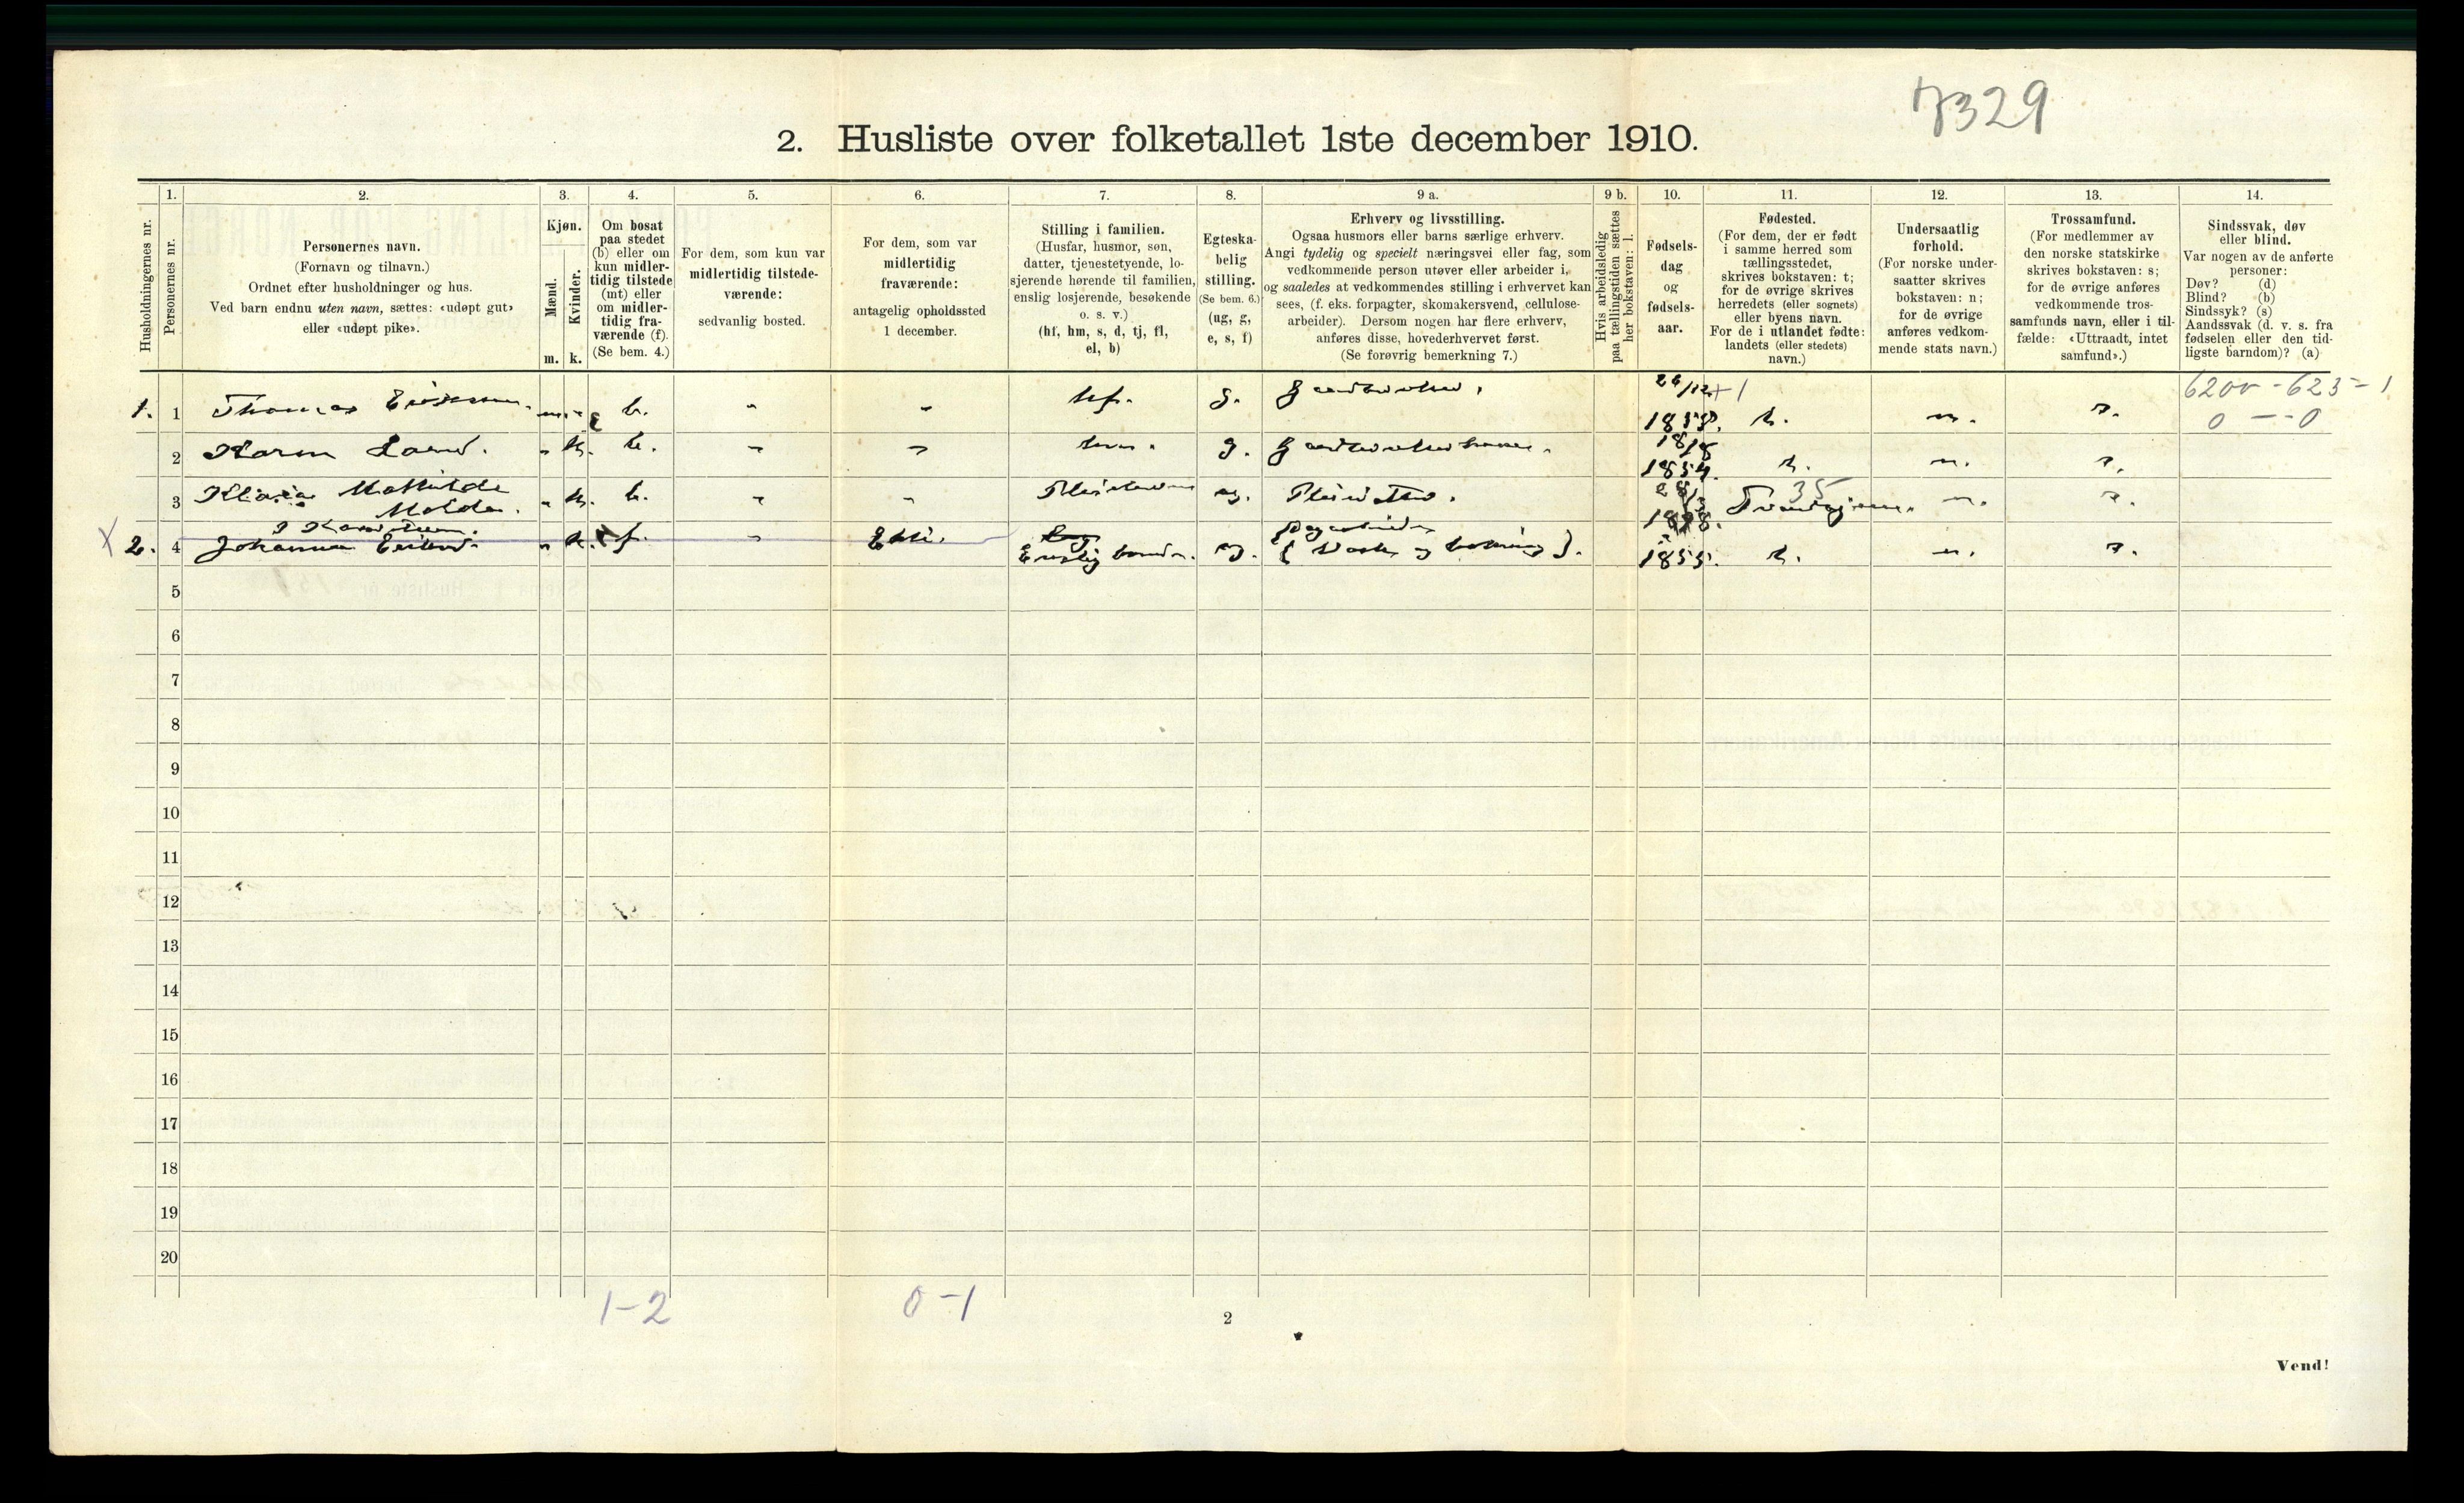 7329
2. Husliste over folketallet 1ste december 1910.
Husholdningernes nr.
1.
Personernes nr.
2.
Personernes navn.
(Fornavn og tilnavn.)
Ordnet efter husholdninger og hus.
Ved barn endnu uten navn, sættes: «udøpt gut»
eller «udøpt pike».
3.
Kjøn.
Mænd.
Kvinder.
m. k.
4.
Om bosat
paa stedet
(b) eller om
kun midler-
tidig tilstede
(mt) eller
om midler-
tidig fra-
værende (f).
(Se bem. 4.)
5.
For dem, som kun var
midlertidig tilstede-
værende:
sedvanlig bosted.
6.
For dem, som var
midlertidig
fraværende:
antagelig opholdssted
1 december.
7.
Stilling i familien.
(Husfar, husmor, søn,
datter, tjenestetyende, lo-
sjerende hørende til familien,
enslig losjerende, besøkende
o. s. v.)
(hf, hm, s, d, tj, fl,
el, b)
8.
Egteska-
belig
stilling.
(Se bem. 6.)
(ug, g,
e, s, f)
9 a.
Erhverv og livsstilling.
Ogsaa husmors eller barns særlige erhverv.
Angi tydelig og specielt næringsvei eller fag, som
vedkommende person utøver eller arbeider i,
og saaledes at vedkommendes stilling i erhvervet kan
sees, (f. eks. forpagter, skomakersvend, cellulose-
arbeider). Dersom nogen har flere erhverv,
anføres disse, hovederhvervet først.
(Se forøvrig bemerkning 7.)
9 b.
Hvis arbeidsledig
paa tællingstiden sættes
her bokstaven: l.
10.
Fødsels-
dag
og
fødsels-
aar.
11.
Fødested.
(For dem, der er født
i samme herred som
tællingsstedet,
skrives bokstaven: t;
for de øvrige skrives
herredets (eller sognets)
eller byens navn.
For de i utlandet fødte:
landets (eller stedets)
navn.)
12.
Undersaatlig
forhold.
(For norske under-
saatter skrives
bokstaven: n;
for de øvrige
anføres vedkom-
mende stats navn.)
13.
Trossamfund.
(For medlemmer av
den norske statskirke
skrives bokstaven: s;
for de øvrige anføres
vedkommende tros-
samfunds navn, eller i til-
fælde: «Uttraadt, intet
samfund».)
14.
Sindssvak, døv
eller blind.
Var nogen av de anførte
personer:
Døv? (d)
Blind? (b)
Sindssyk? (s)
Aandssvak (d. v. s. fra
fødselen eller den tid-
ligste barndom)? (a)
1. 1 Thomas m. b. hf. g. 26/12 t. n. s.
0 -- 0
2 Karen k. b. hm. g. 18/8 1854. t. n. s.
3 Mathilde k. b. ug. 35 n. s.
Molde.
X 2. 4 Johanna k. f. Enslig ug. 1855. t. n. s.
5
6
7
8
9
10
11
12
13
14
15
16
17
18
19
20
1-2 0-1
2
Vend!